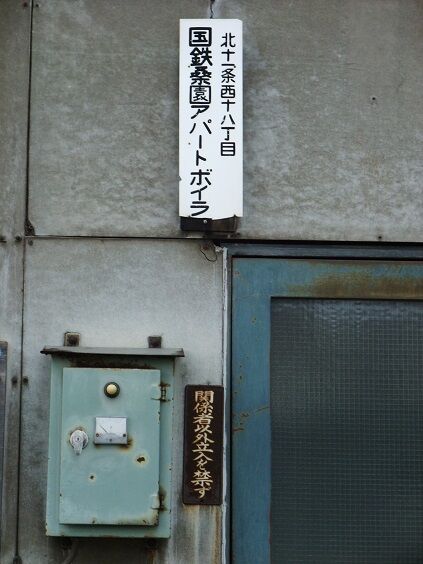 北十一条西十八丁目
国鉄桑園アパートボイラ
関係者以外立入を禁ず